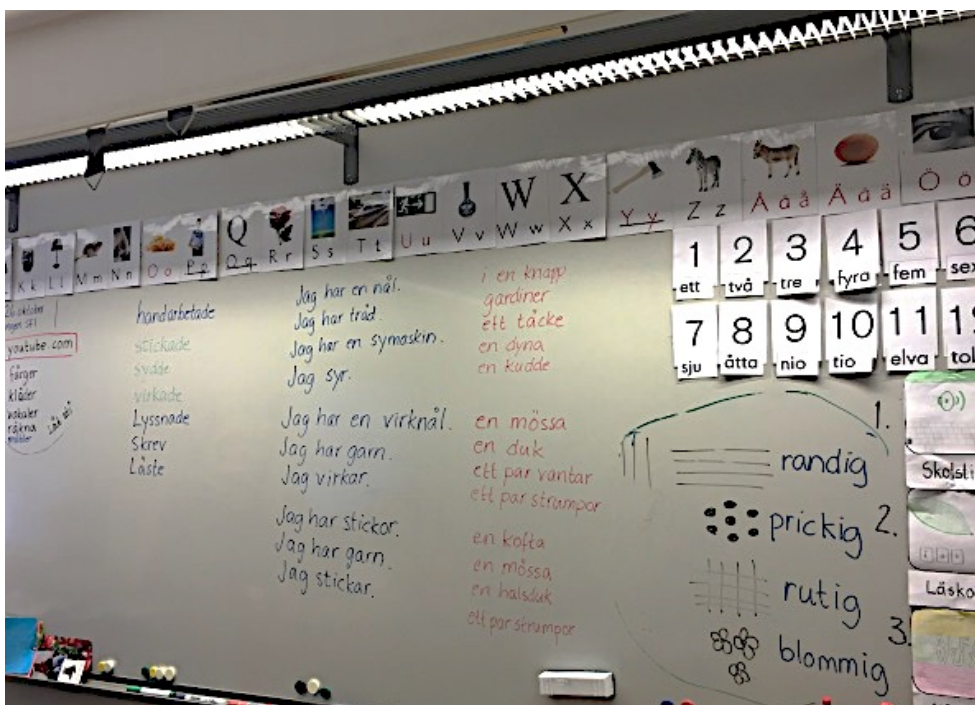 K k
L l
M m
N n
O o
P p
Q
Q q
R r
S s
T t
U u
V v
W
W w
X
X x
Y y
Z z
Å å å
Ä ä ä
Ö ö
1 ett
2 två
3 tre
4 fyra
5 fem
6 sex
7 sju
8 åtta
9 nio
10 tio
11 elva
26 oktober
youtube.com
färger
kläder
vokaler
räkna
handarbetade
stickade
sydde
virkade
Lyssnade
Skrev
Läste
Jag har en nål.
Jag har tråd.
Jag har en symaskin.
Jag syr.
Jag har en virknål.
Jag har garn.
Jag virkar.
Jag har stickor.
Jag har garn.
Jag stickar.
i en knapp
gardiner
ett täcke
en dyna
en kudde
en mössa
en duk
ett par vantar
ett par strumpor
en kofta
en mössa
en halsduk
ett par strumpor
randig
prickig
rutig
blommig
1.
2.
3.